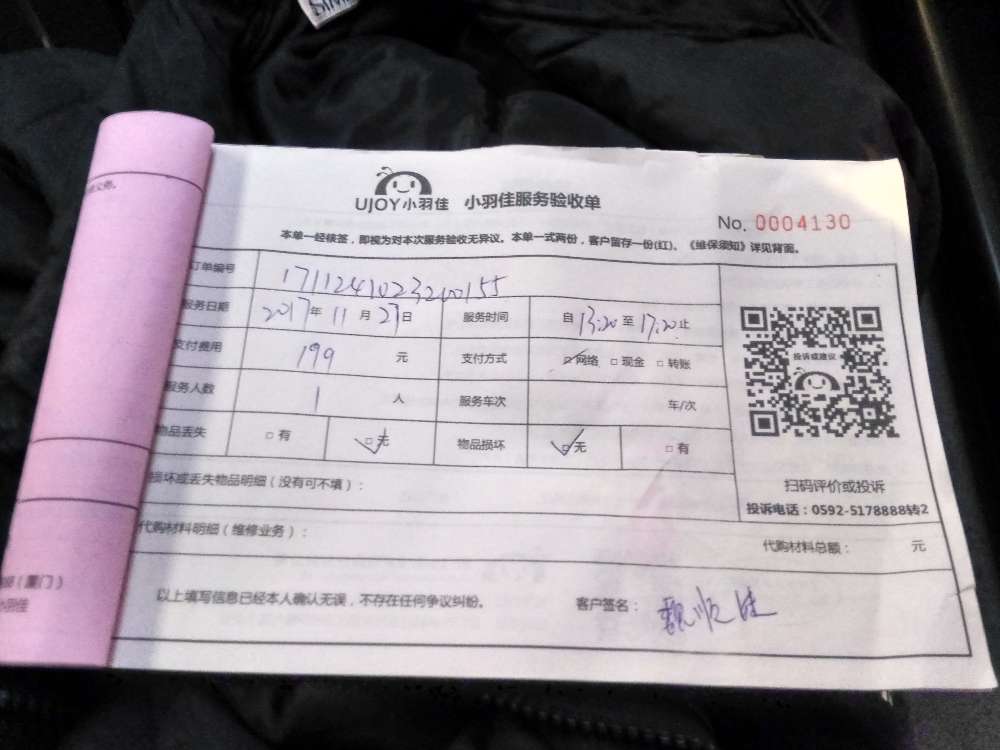 UJOY小羽佳 小羽佳服务验收单
No. 0004130
本单一经核签，即视为对本次服务验收无异议。本单一式两份，客户留存一份(红)、《维保须知》详见背面。
订单编号 17112410232600155
服务日期 2017年 11月 27日 服务时间 自13:20至17:20止
支付费用 199 元 支付方式 □网络 □现金 □转账
服务人数 1 人 服务车次 车/次
物品丢失 □有 □无 物品损坏 □无 □有
投诉或建议
扫码评价或投诉
投诉电话：0592-5178888转2
损坏或丢失物品明细（没有可不填）：
代购材料明细（维修业务）： 代购材料总额： 元
以上填写信息已经本人确认无误，不存在任何争议纠纷。 客户签名： 魏顺
（厦门）
小羽佳